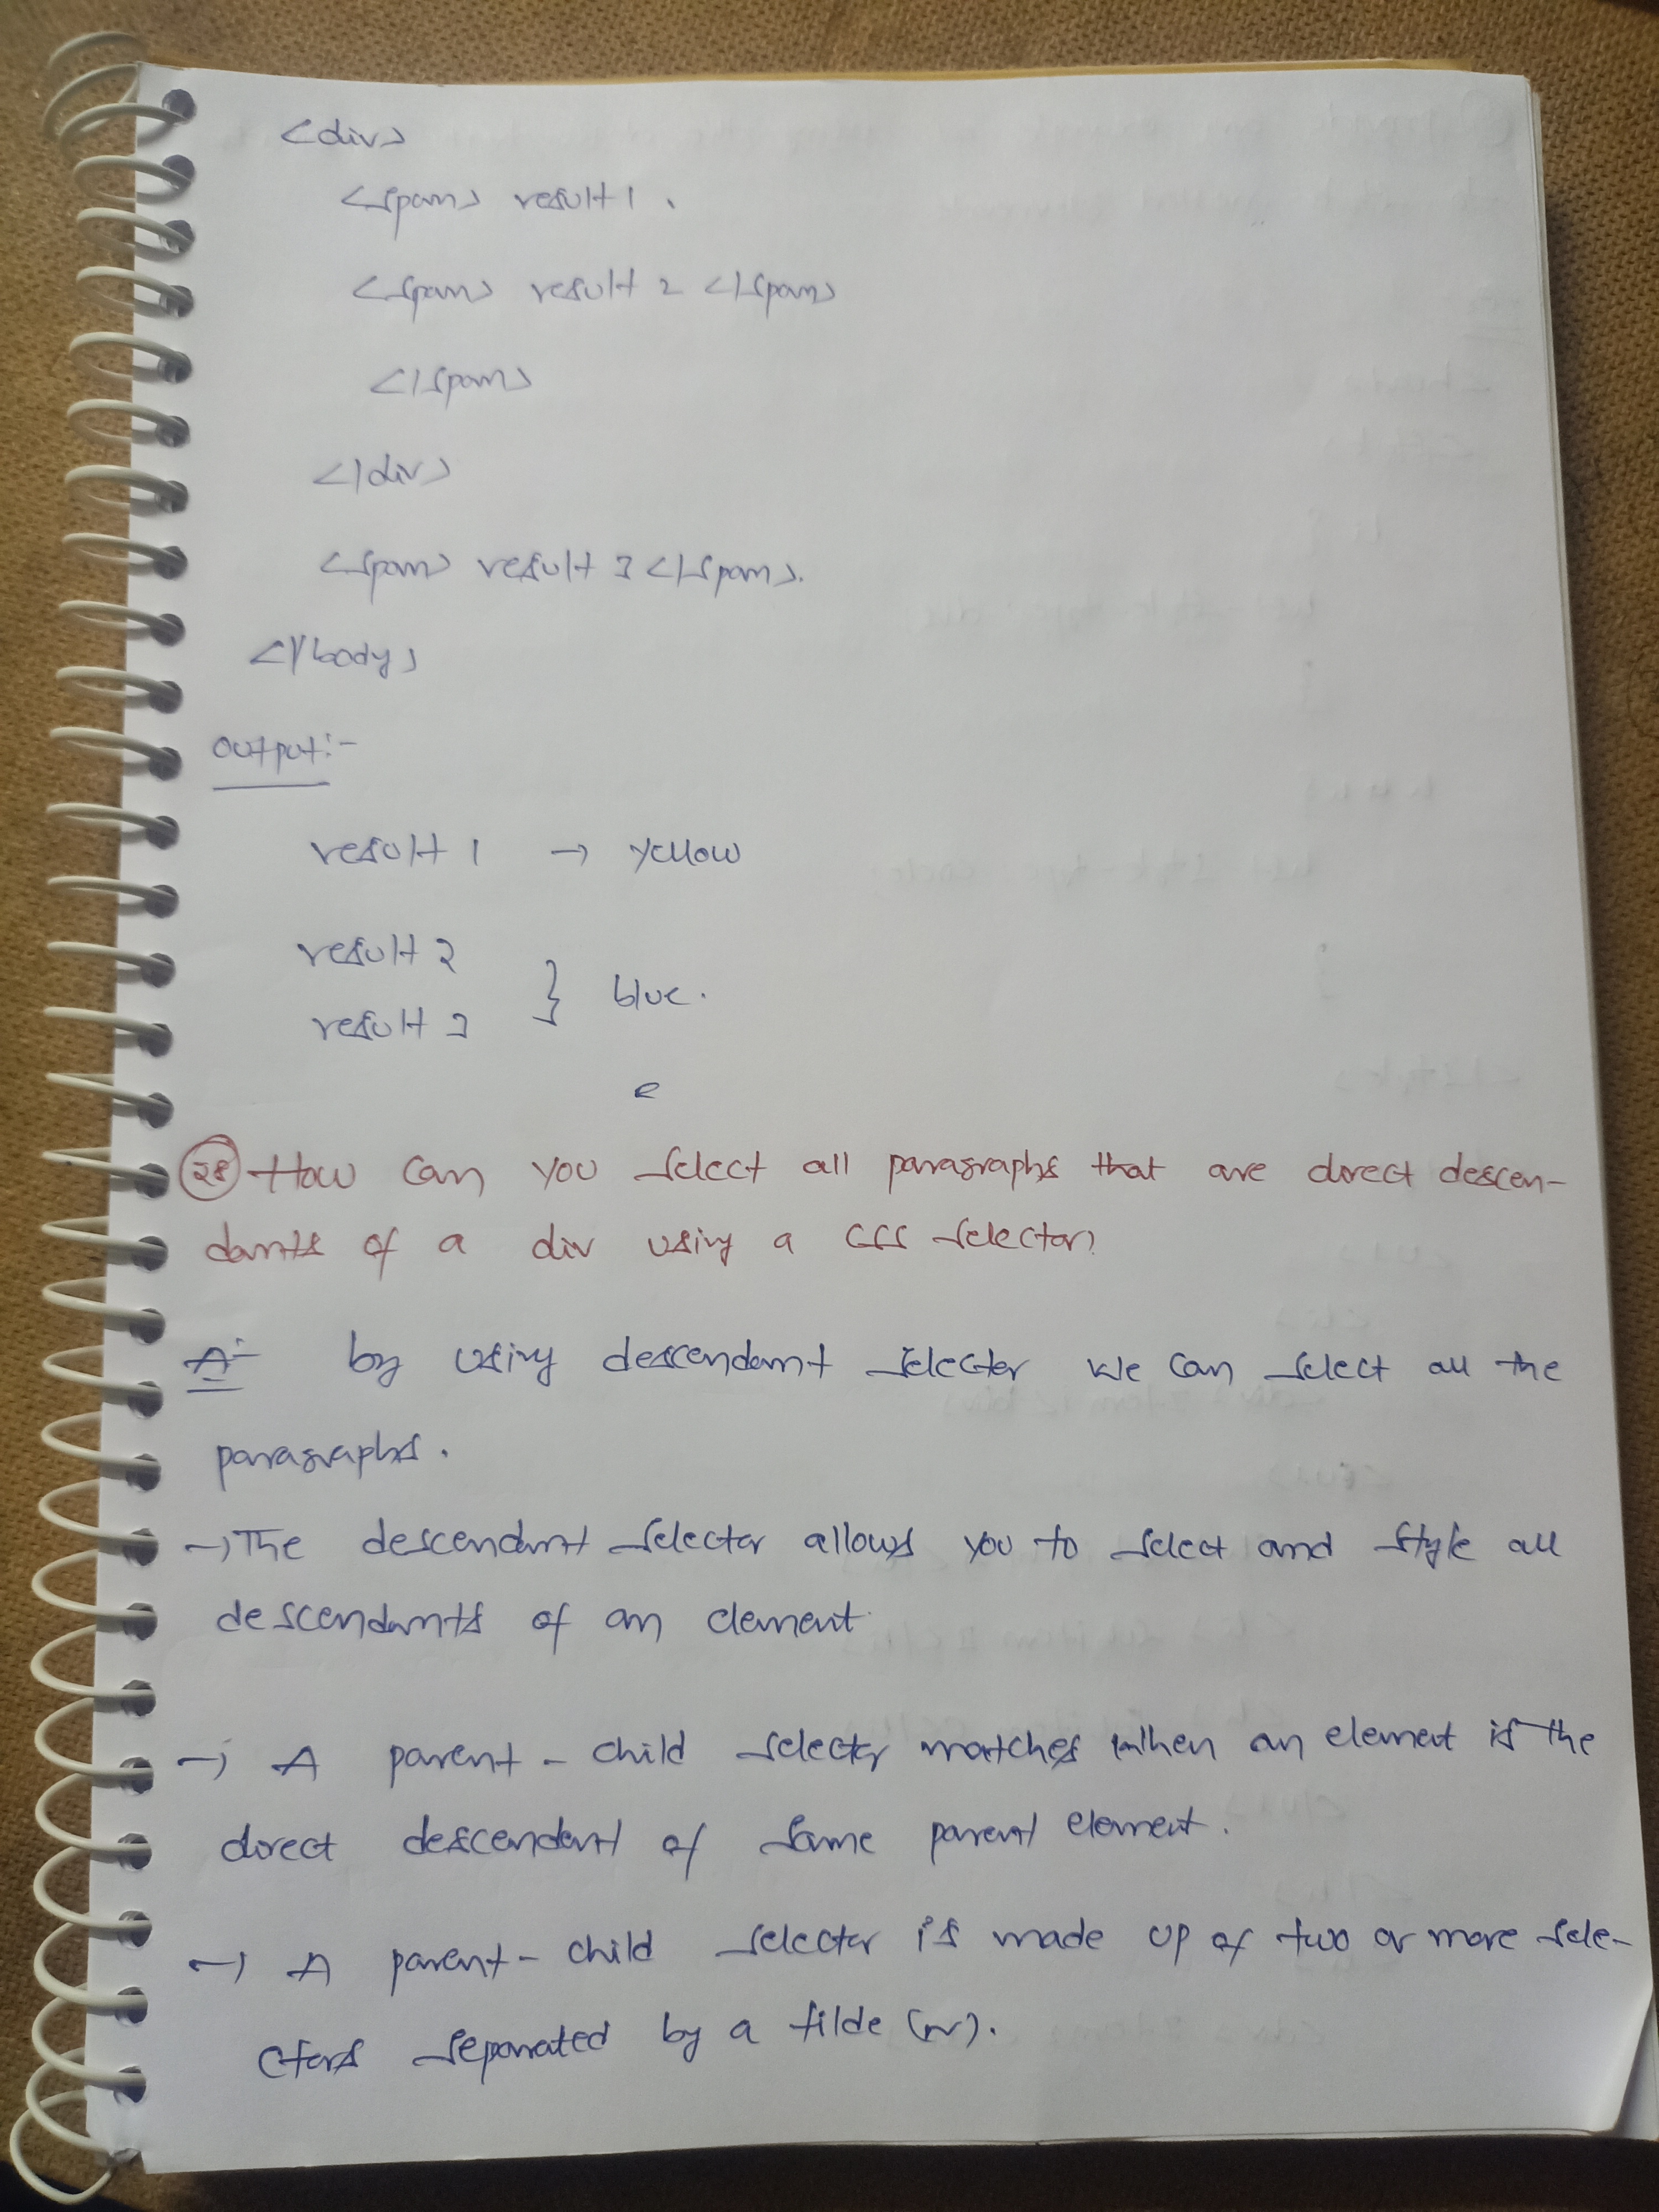 <div>
<span> result 1.
<span> result 2 </span>
</span>
</div>
<span> result 3 </span>.
</body>
output:-
result 1 → yellow
result 2
} blue.
result 3
e
28 How can you select all paragraphs that are direct descen-
dants of a div using a CSS selector?
A:- by using descendant selecter we can select all the
paragraphs.
→ The descendant selector allows you to select and style all
descendants of an element.
→ A parent - child selector matches when an element is the
direct descendent of same parent element.
→ A parent - child selector is made up of two or more sele-
ctors separated by a tilde (~).